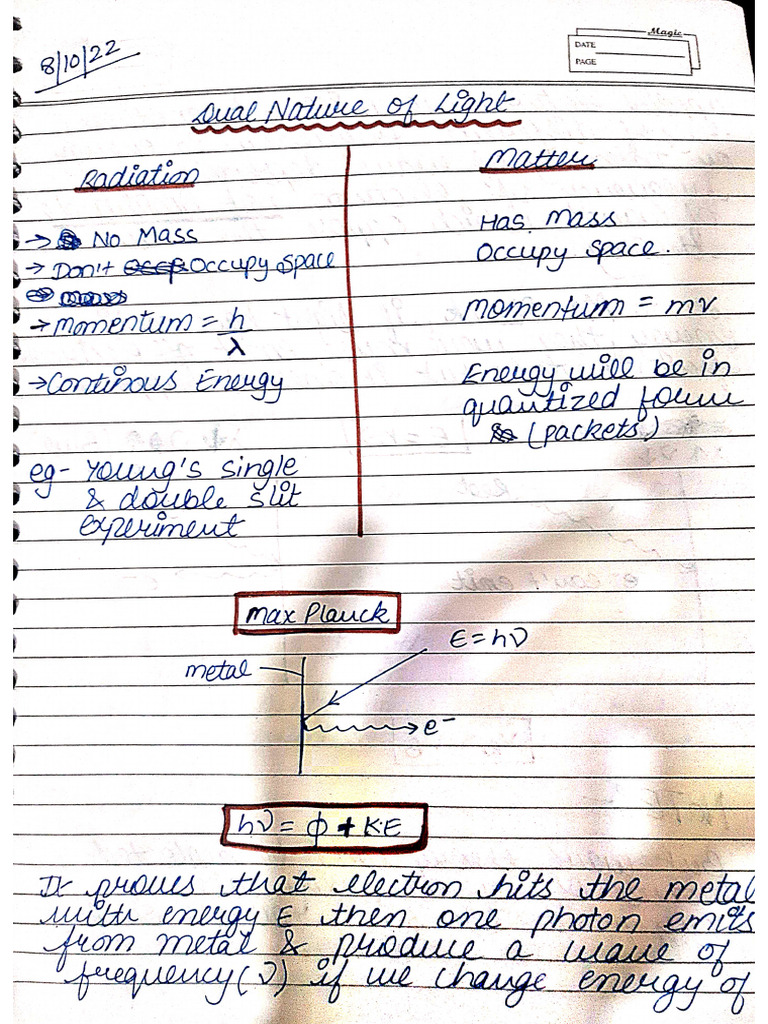 8/10/22
Magic
DATE
PAGE
Dual Nature of Light
Radiation
→ No Mass
→ Don't Occupy Space
→ Momentum = h/λ
→ Continous Energy
eg- Young's single
& double slit
experiment
Matter
Has Mass
Occupy Space.
Momentum = mv
Energy will be in
quantized form
(packets)
Max Planck
E = hν
metal
e⁻
hν = ϕ + K.E
It proves that electron hits the metal
with energy E then one photon emits
from metal & produce a wave of
frequency (ν) if we change energy of